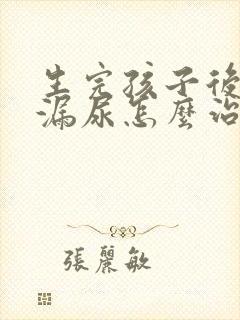 生完孩子後
漏尿怎麼治
張麗敏